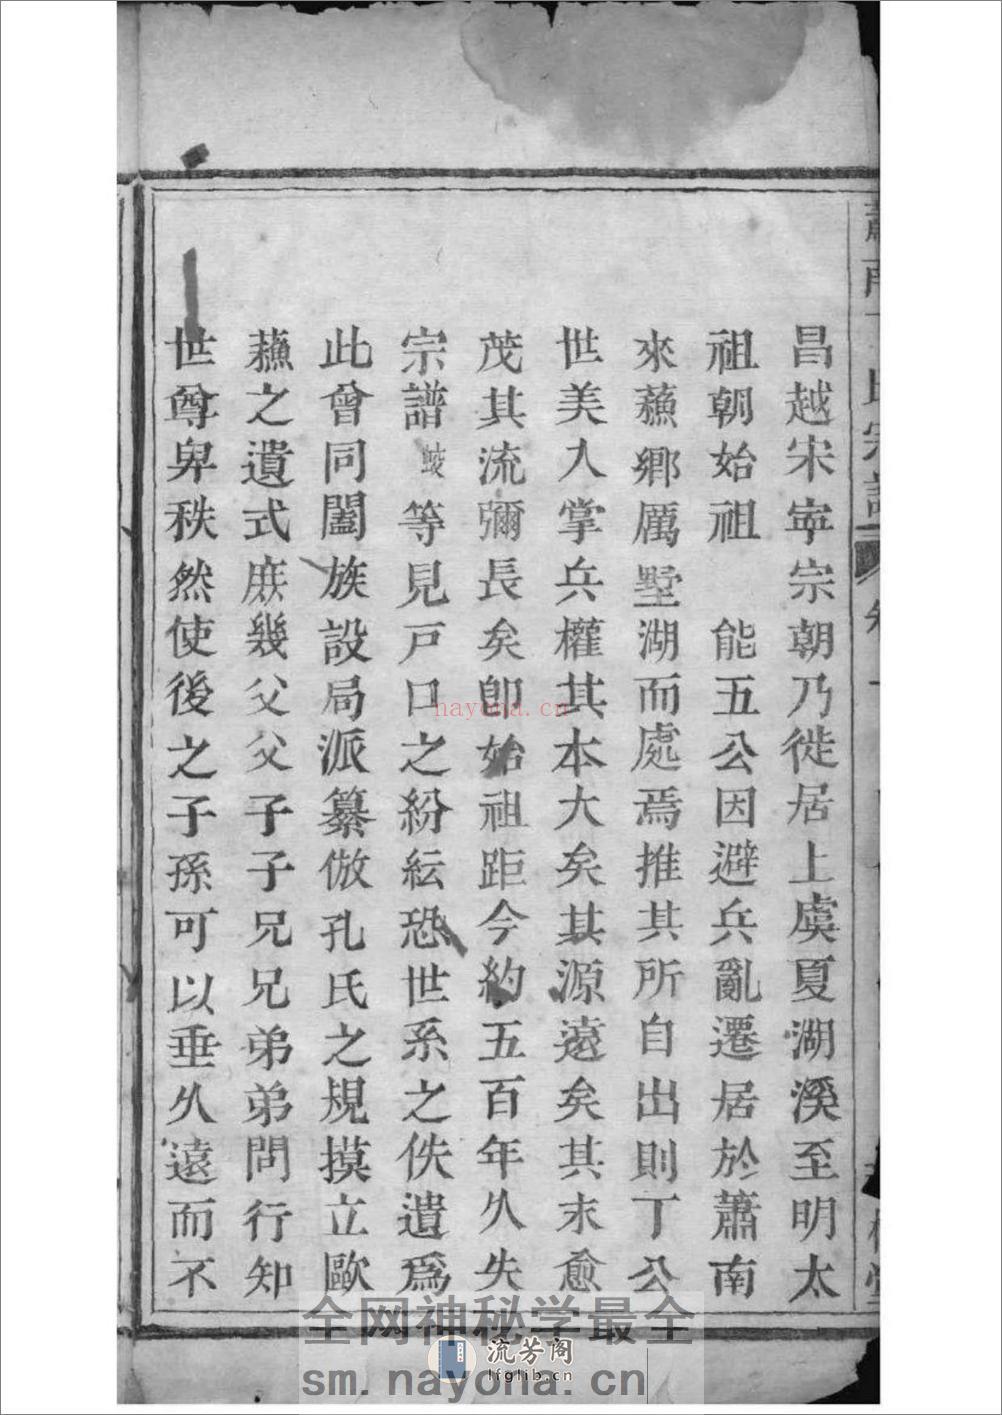 昌越宋寍宗朝乃徙居上虞夏湖溪至明太
祖朝始祖　能五公因避兵亂遷居於蕭南
來蘓鄉厲墅湖而處焉推其所自出則丁公
世美入掌兵權其本大矣其源遠矣其末愈
茂其流彌長矣卽始祖距今約五百年久失
宗譜 等見戸口之紛紜恐世系之佚遺爲
此曾同闔族設局派纂倣孔氏之規摸立歐
蘓之遺式庻幾父父子子兄兄弟弟問行知
世尊卑秩然使後之子孫可以垂久遠而不
nayona.cn
全网神秘学最全
流芳阁
lfglib.cn
sm.nayona.cn